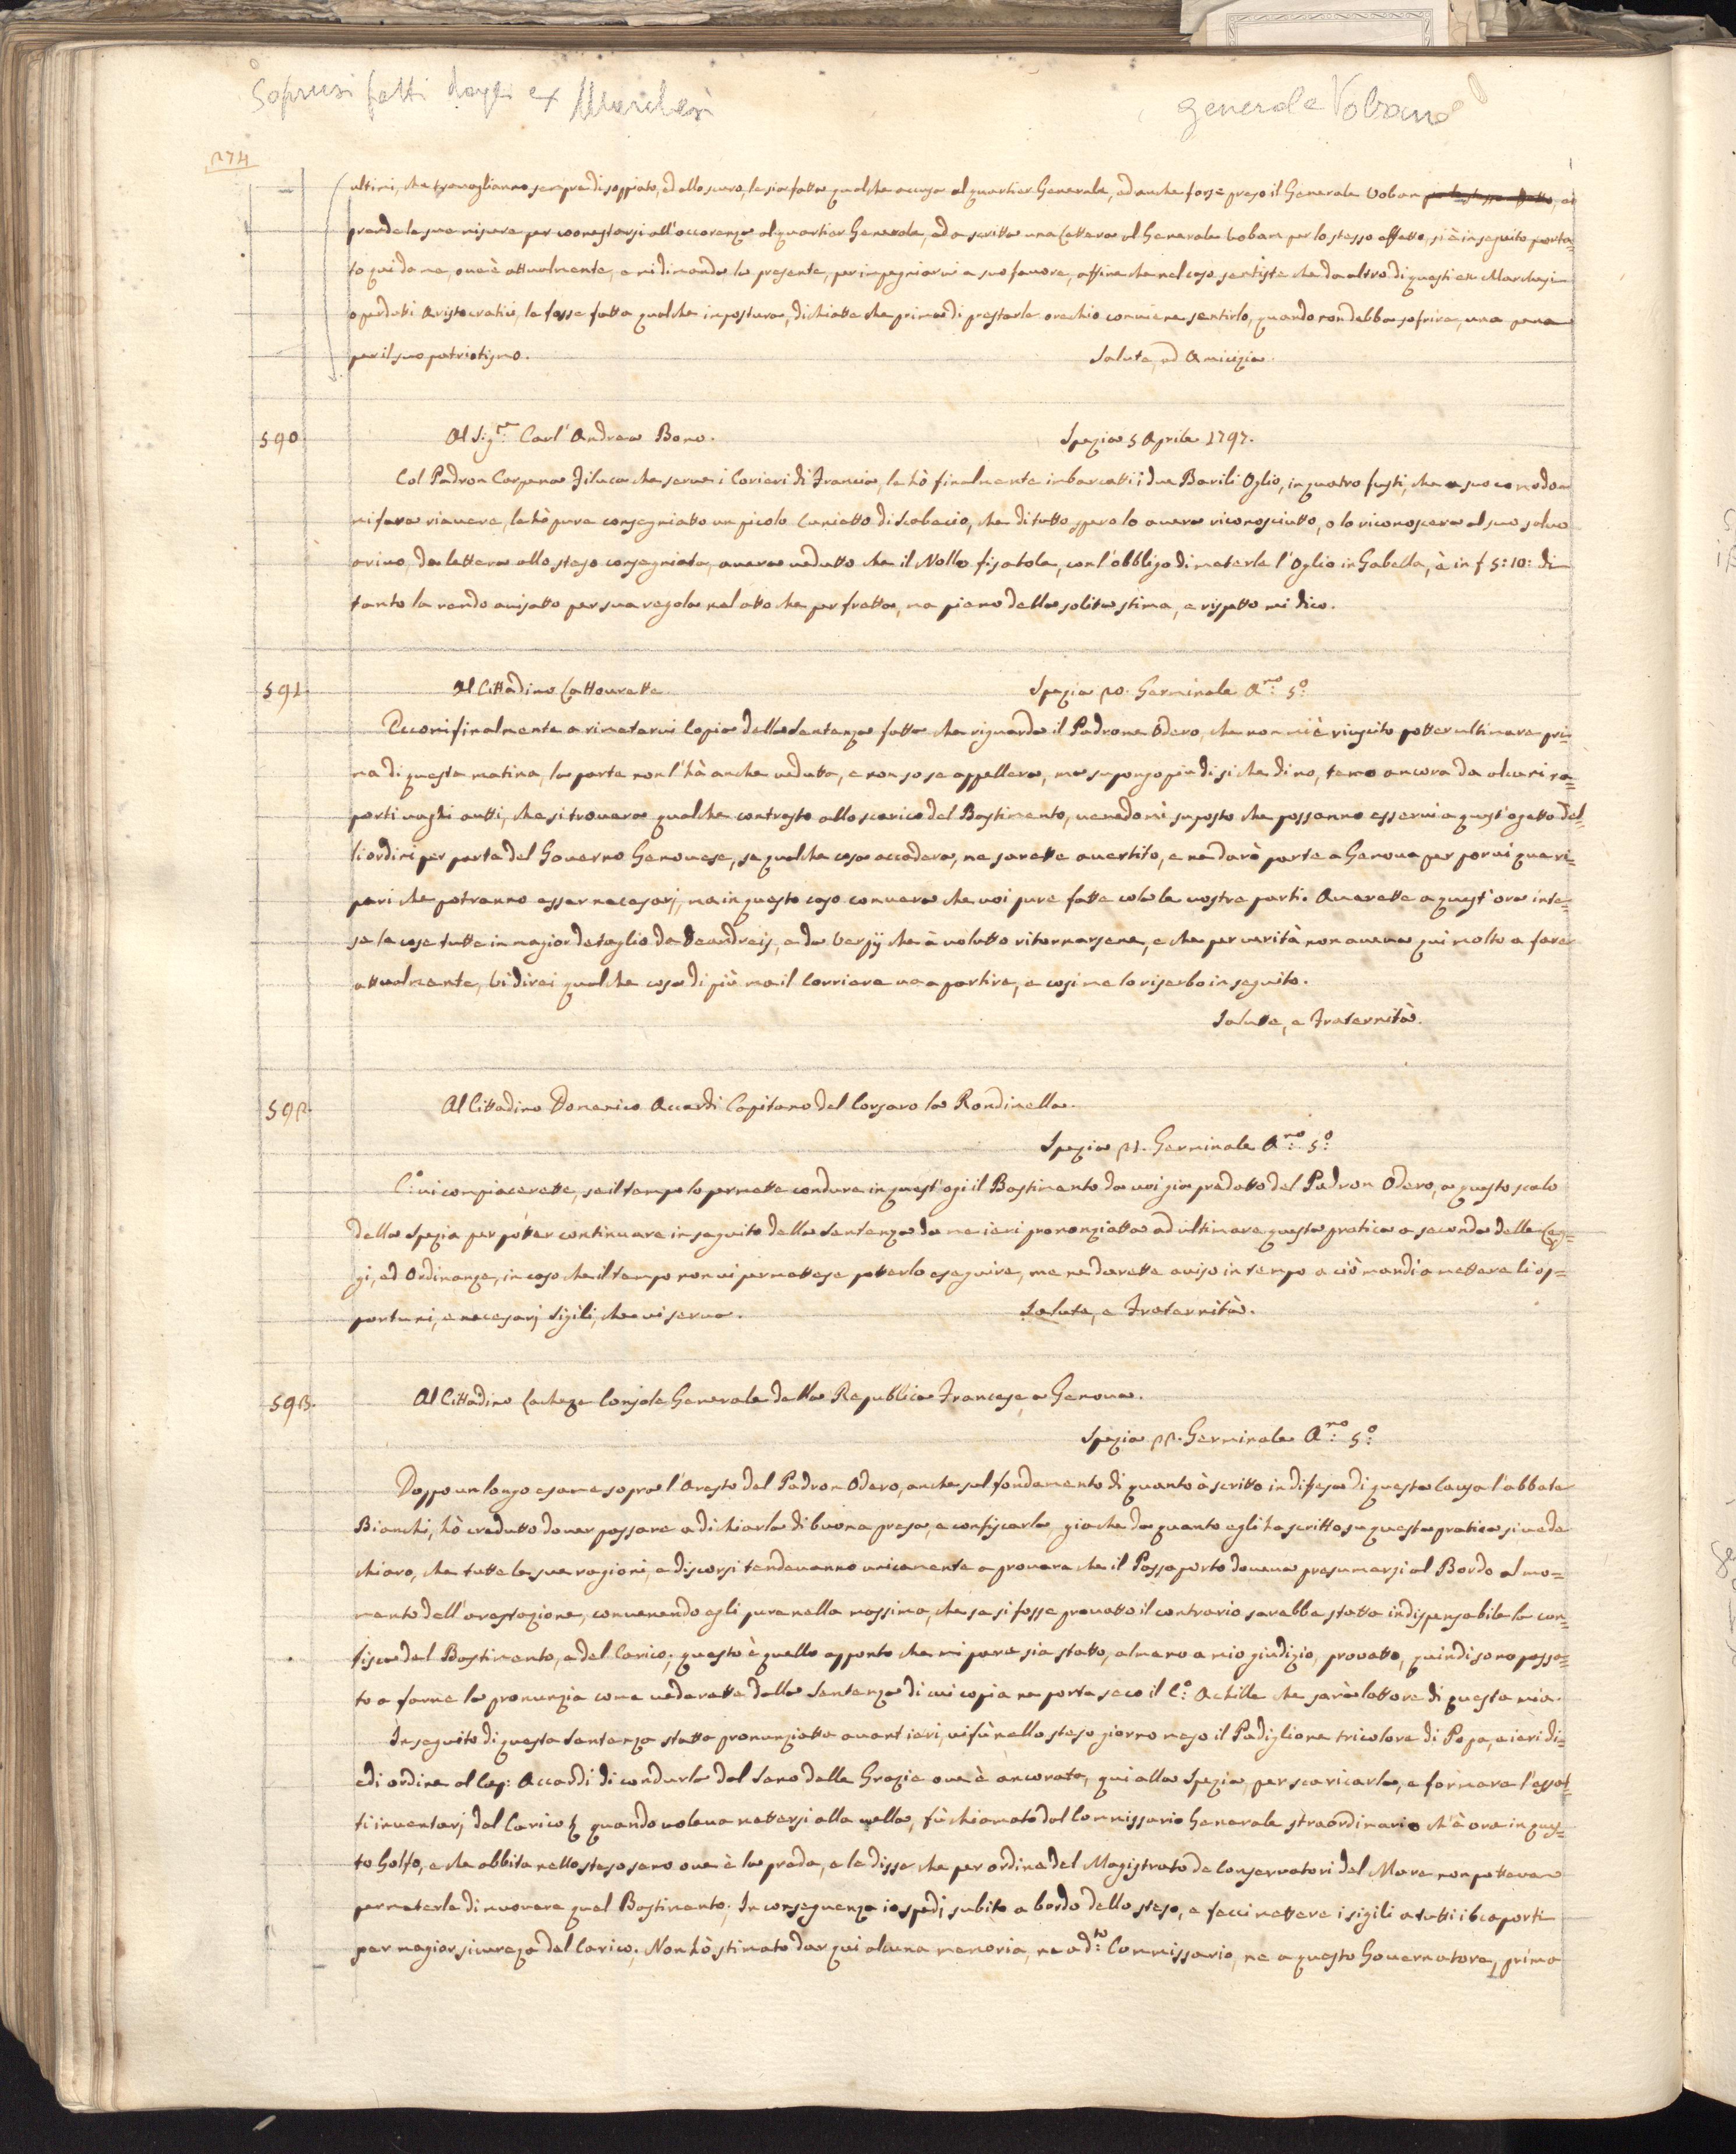 Soprusi fatti dagli ex Marchesi
generale Vobano
274
ultimi, che travagliano sempre di soppiato, ed allo scuro, le sia fatta qualche accusa al quartier Generale, ed anche forse preso il Generale Voban per lo stesso effetto, ei
prende le sue misure per coonestarsi all'occorenza al quartier Generale, ed a scritto una Lettera al Generale Voban per lo stesso effetto, si è in seguito porta=
to qui da me, ove è attualmente, e mi dimanda la presente, per impegniarvi a suo favore, affine che nel caso sentiste che da altro di questi ex Marchesi
o perduti Aristocratici, le fosse fatta qualche impostura, dichiatte che prima di prestarle orechio conviene sentirlo, quando non debba sofrire, una pena
per il suo patriotismo. Salute, ed Amicizia.
590 Al Sig.re Carl'Andrea Bono. Spezia 5 Aprile 1797.
Col Padron Carpena Filuca che serve i Corieri di Francia, le hò finalmente imbarcatti i due Barili Oglio, in quatro fusti, che a suo comodo
mi fara riavere, le hò pure consegniatto un picolo Cuniatto di Scabecio, che di tutto spero lo avera riconosciutto, o lo riconoscera al suo salvo
arivo, da lettera allo steso consegniata, avera vedutto che il Nollo fisatole, con l'obbligo di meterle l'Oglio in Gabella, è in f 5:10: di
tanto la rendo avisatto per sua regola nel atto che per fretta, ma pieno della solita stima, e rispetto mi dico.
591 Al Cittadino Lattourette. Spezia 20. Germinale A.no 5.o
Eccomi finalmente a rimetervi Copia della Sentenza fatta che riguarda il Padrone Odero, che non mi è riuscito potter ultimare pri=
ma di questa matina, la parte non l'hà anche veduta, e non so se appellera, ma supongo più di si che di no, temo ancora da alcuni ra=
porti vaghi autti, che si trovera qualche contrasto allo scarico del Bastimento, venedomi suposto che possanno esservi a quest'ogetto del=
li ordini per parte del Governo Genovese, se qualche cosa accadera, ne sarette avertito, e ne darò parte a Genova per porvi que ri=
pari che potranno esser necesarj, ma in questo caso convera che voi pure fatte colà le vostre parti. Averette a quest'ora inte=
se le cose tutte in magior detaglio da Deandreis, e da Versij che à volutto ritornarsene, e che per verità non aveva qui molto a fare
attualmente, vi direi qualche cosa di più ma il Corriere va a partire, e cosi me lo riserbo in seguito.
Salutte, e Fraternità.
592. Al Cittadino Domenico Accardi Capitano del Corsaro la Rondinella.
Spezia 21. Germinale A.no 5.o
C.o vi compiacerette, se il tempo lo permette condure in quest'ogi il Bastimento da voi gia predatto del Padron Odero, a questo scalo
della Spezia per potter continuare in seguito della Sentenza da me ieri prononziatta ad ultimare questa pratica a seconda delle Leg=
gi, ed Ordinanze, in caso che il tempo non vi permettese potterlo eseguire, me ne darette aviso in tempo a ciò mandi a mettere li op=
portuni, e necesarj Sigili, che vi serva. Salute, e Fraternità.
593. Al Cittadino Lacheze Console Generale della Republica Francese a Genova.
Spezia 22. Germinale A.no 5.o
Doppo un longo esame sopra l'Aresto del Padron Odero, anche sul fondamento di quanto à scritto in difesa di questa Causa l'abbate
Bianchi, hò credutto dover passare a dichiarla di buona presa, e confiscarla, gia che da quanto egli ha scritto su questa pratica si vede
chiaro, che tutte le sue ragioni, e discorsi tendevanno unicamente a provare che il Passaporto doveva presumersi al Bordo al mo=
mento dell'arestazione, convenendo egli pure nella massima, che se si fosse provatto il contrario sarebbe statta indispensabile la con=
fisca del Bastimento, e del Carico; questo è quello apponto che mi pare sia statto, almeno a mio giudizio, provatto, quindi sono passa=
to a farne la pronunzia come vederette dalla Sentenza di cui copia ne porta seco il C.o Achille che sarà lattore di questa mia.
In seguito di questa Sentenza statta pronunziatta avant'ieri, vi fù nello steso giorno meso il Padiglione tricolore di Popa, e ieri di=
edi ordine al Cap: Accardi di condurla dal Seno delle Grazie ove è ancorata, qui alla Spezia, per scaricarla, e formare l'essat=
ti inventarj del Carico quando voleva mettersi alla vella, fù chiamato dal Commissario Generale straordinario ch'è ora in ques=
to Golfo, e che abbita nello steso seno ove è la preda, e le disse che per ordine del Magistrato de Conservatori del Mare non potteva
permeterle di muovere quel Bastimento; In conseguenza io spedj subito a bordo dello steso, e feci mettere i sigili a tutti i bocaporti
per magior siureza del Carico; Non hò stimato dar qui alcuna memoria, ne a d.to Commissario, ne a questo Governatore, prima